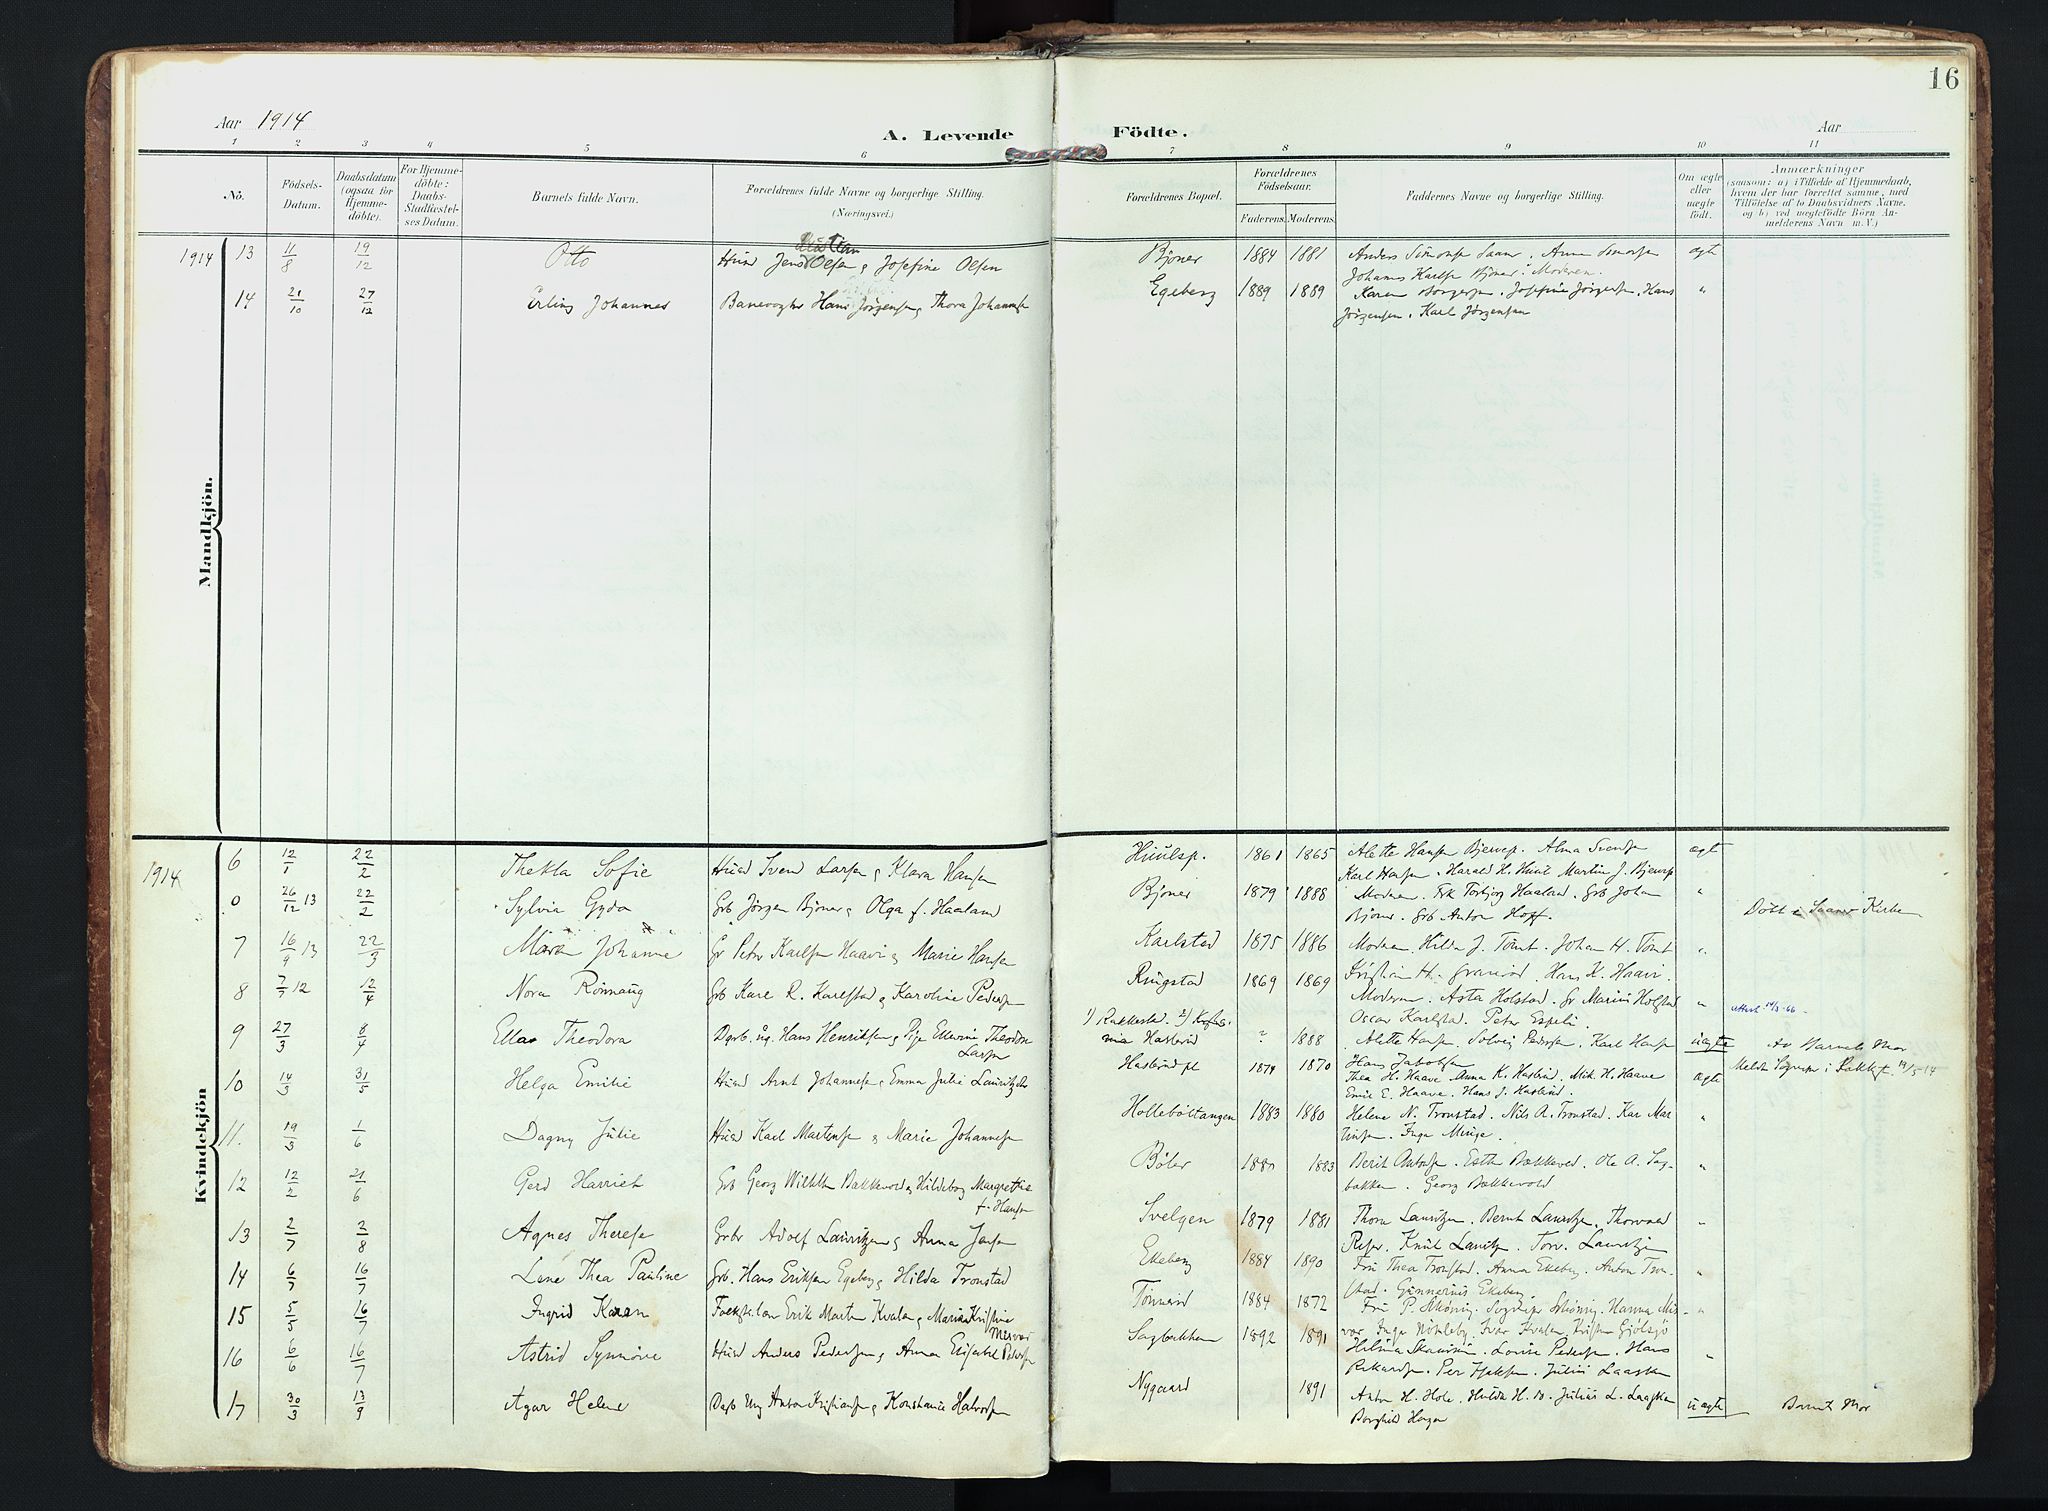 16
Aar 1914
A. Levende Födte.
Aar
1 2 3 4 5 6 7 8 9 10 11
No.
Födsels-Datum.
Daabsdatum (ogsaa for Hjemme-döbte).
For Hjemme-döbte: Daabs-Stadfæstel-ses Datum.
Barnets fulde Navn.
Forældrenes fulde Navne og borgerlige Stilling.
(Næringsvei.)
Forældrenes Bopæl.
Forældrenes Födselsaar.
Faderens. Moderens.
Faddernes Navne og borgerlige Stilling.
Om ægte eller uægte födt.
Anmærkninger
(saasom: a) i Tilfælde af Hjemmedaab, hvem der har forrettet samme, med Tilföielse af to Daabsvidners Navne. og b) ved uægtefödte Börn An-melderens Navn m. V.)
Mandkjön.
1914 13 11/8 19/12 Otto Husd Jens Kristian Olsen & Josefine Olsen Bjöner 1884 1881 Anders Simonsen Saner. Anna
Johannes Karlsen Bjöner. Moderen. ægt
14 21/10 27/12 Erling Johannes Banevogter Hans Jörgensen & Thora Johannesen Egeberg 1889 1889 Karen Borgersen. Josefine Jörgensen. Hans
Jörgensen. Karl Jörgensen "
Kvindekjön
1914 6 12/1 22/2 Thekla Sofie Husd Svend Larsen & Klara Hansen Huulsp. 1861 1865 Alette Hansen Bjerep. Alma Svendsen
Karl Hansen. Harald H. Huul Martin J. Bjerep ægt
0 26/12 13 22/2 Sylvia Gyda Grb Jörgen Bjöner & Olga f. Haaland Bjöner 1879 1888 Moderen. Frk Torbjörg Haaland. Grb Johan
Bjöner. Grb Anton Hopf. " Döbt i Saaner Kirke
7 16/9 13 22/3 Maren Johanne Gr Peter Karlsen Haavi & Marie Hansen Karlstad 1875 1886 Moderen. Hilda J. Tomt. Johan H. Tomt
Kristian H. . Hans K. Haavi. "
8 7/7 12 12/4 Nora Rönnaug Grb Karl R. Karlstad & Karoline Pedersen Ringstad 1869 1869 Moderen. Asta Holstad. Gr Marius Holstad
Oscar Karlstad. Peter Espeli. " 14/3-66
9 27/3 8/4 Ella Theodora Dgrb. ug. Hans Henriksen & Pige Elevine Theodora
Larsen 1) Rakkestad. 2)
Haslerud ? 1888 Alette Hansen. Solveig Pedersen. Karl Hansen
Hans Jakobsen uægte Av Barnets Mor
Meldt Sogneprest i Rakkest. 14/5-14
10 14/3 31/5 Helga Emilie Husd Arnt Johannesen & Emma Julie Lauritzdtr Haslerud pl 1870 Thea H. Haave Anna K. Haslerud. Mik. H. Haave
Emil E. Haave. Hans J. Haslerud. ægt
11. 19/3 1/6 Dagny Julie Husd Karl Martinsen & Marie Johannesen Holleböltangen 1883 1880 Helene N. Tronstad. Nils A. Tronstad. Kar Mar
tinsen. Inga Minge. "
12 12/2 21/6 Gerd Harriet Grb Georg Wilhelm Bækkevold & Hildeborg Margrethe
f. Hansen Böler 1883 Berit Antonsen. Esther Bækkevold. Ole A. Sag-
bakken. Georg Bækkevold "
13 2/7 2/8 Agnes Therese Grbr Adolf Lauritzen & Anna Jensen Svelgen 1879 1881 Thora Lauritzen. Bernt Lauritzen. Thorvald
Knut Lauritz. Torv. Lauritzen "
14 6/7 16/7 Lene Thea Pauline Grb. Hans Eriksen Egeberg & Hilda Tronstad Ekeberg 1884 1890 Fru Thea Tronstad. Anna Ekeberg. Anton Tron-
stad. Gunnerius Ekeberg. "
15 5/5 16/7 Ingrid Karen Folkskolær Erik Martin Kvalen & Maria Kristine
Mervar 1884 1872 Fru P. Skönig. Sognepr Skönig. Hanna Mer-
var. Inga Nökleby. Ivar Kvalen. Kristen Gjölsjö "
16 6/6 16/7 Astrid Synnöve Husd Anders Pedersen & Anna Elisabet Pedersen Sagbakken 1892 1891 Helma . Lovise Pedersen. Hans
Rikardsen. Per . Julius Laasken "
17 30/3 13/9 Agar Helene Dagb Ung Anton Kristiansen & Konstanse Halvorsen Nygaard 1891 Anton H. Hole. Hulda H. do. Julius L. Laasken
Borghild Hagen uægte Barnets Mor